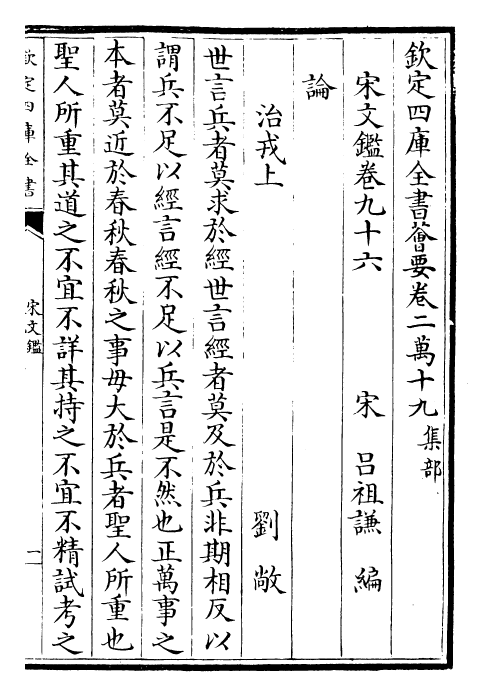 欽定四庫全書薈要卷二萬十九 集部
宋文鑑卷九十六 宋 呂祖謙 編
論
治戎上 劉敞
世言兵者莫求於經世言經者莫及於兵非期相反以
謂兵不足以經言經不足以兵言是不然也正萬事之
本者莫近於春秋春秋之事毋大於兵者聖人所重也
聖人所重其道之不宜不詳其持之不宜不精試考之
欽定四庫全書
宋文鑑
一